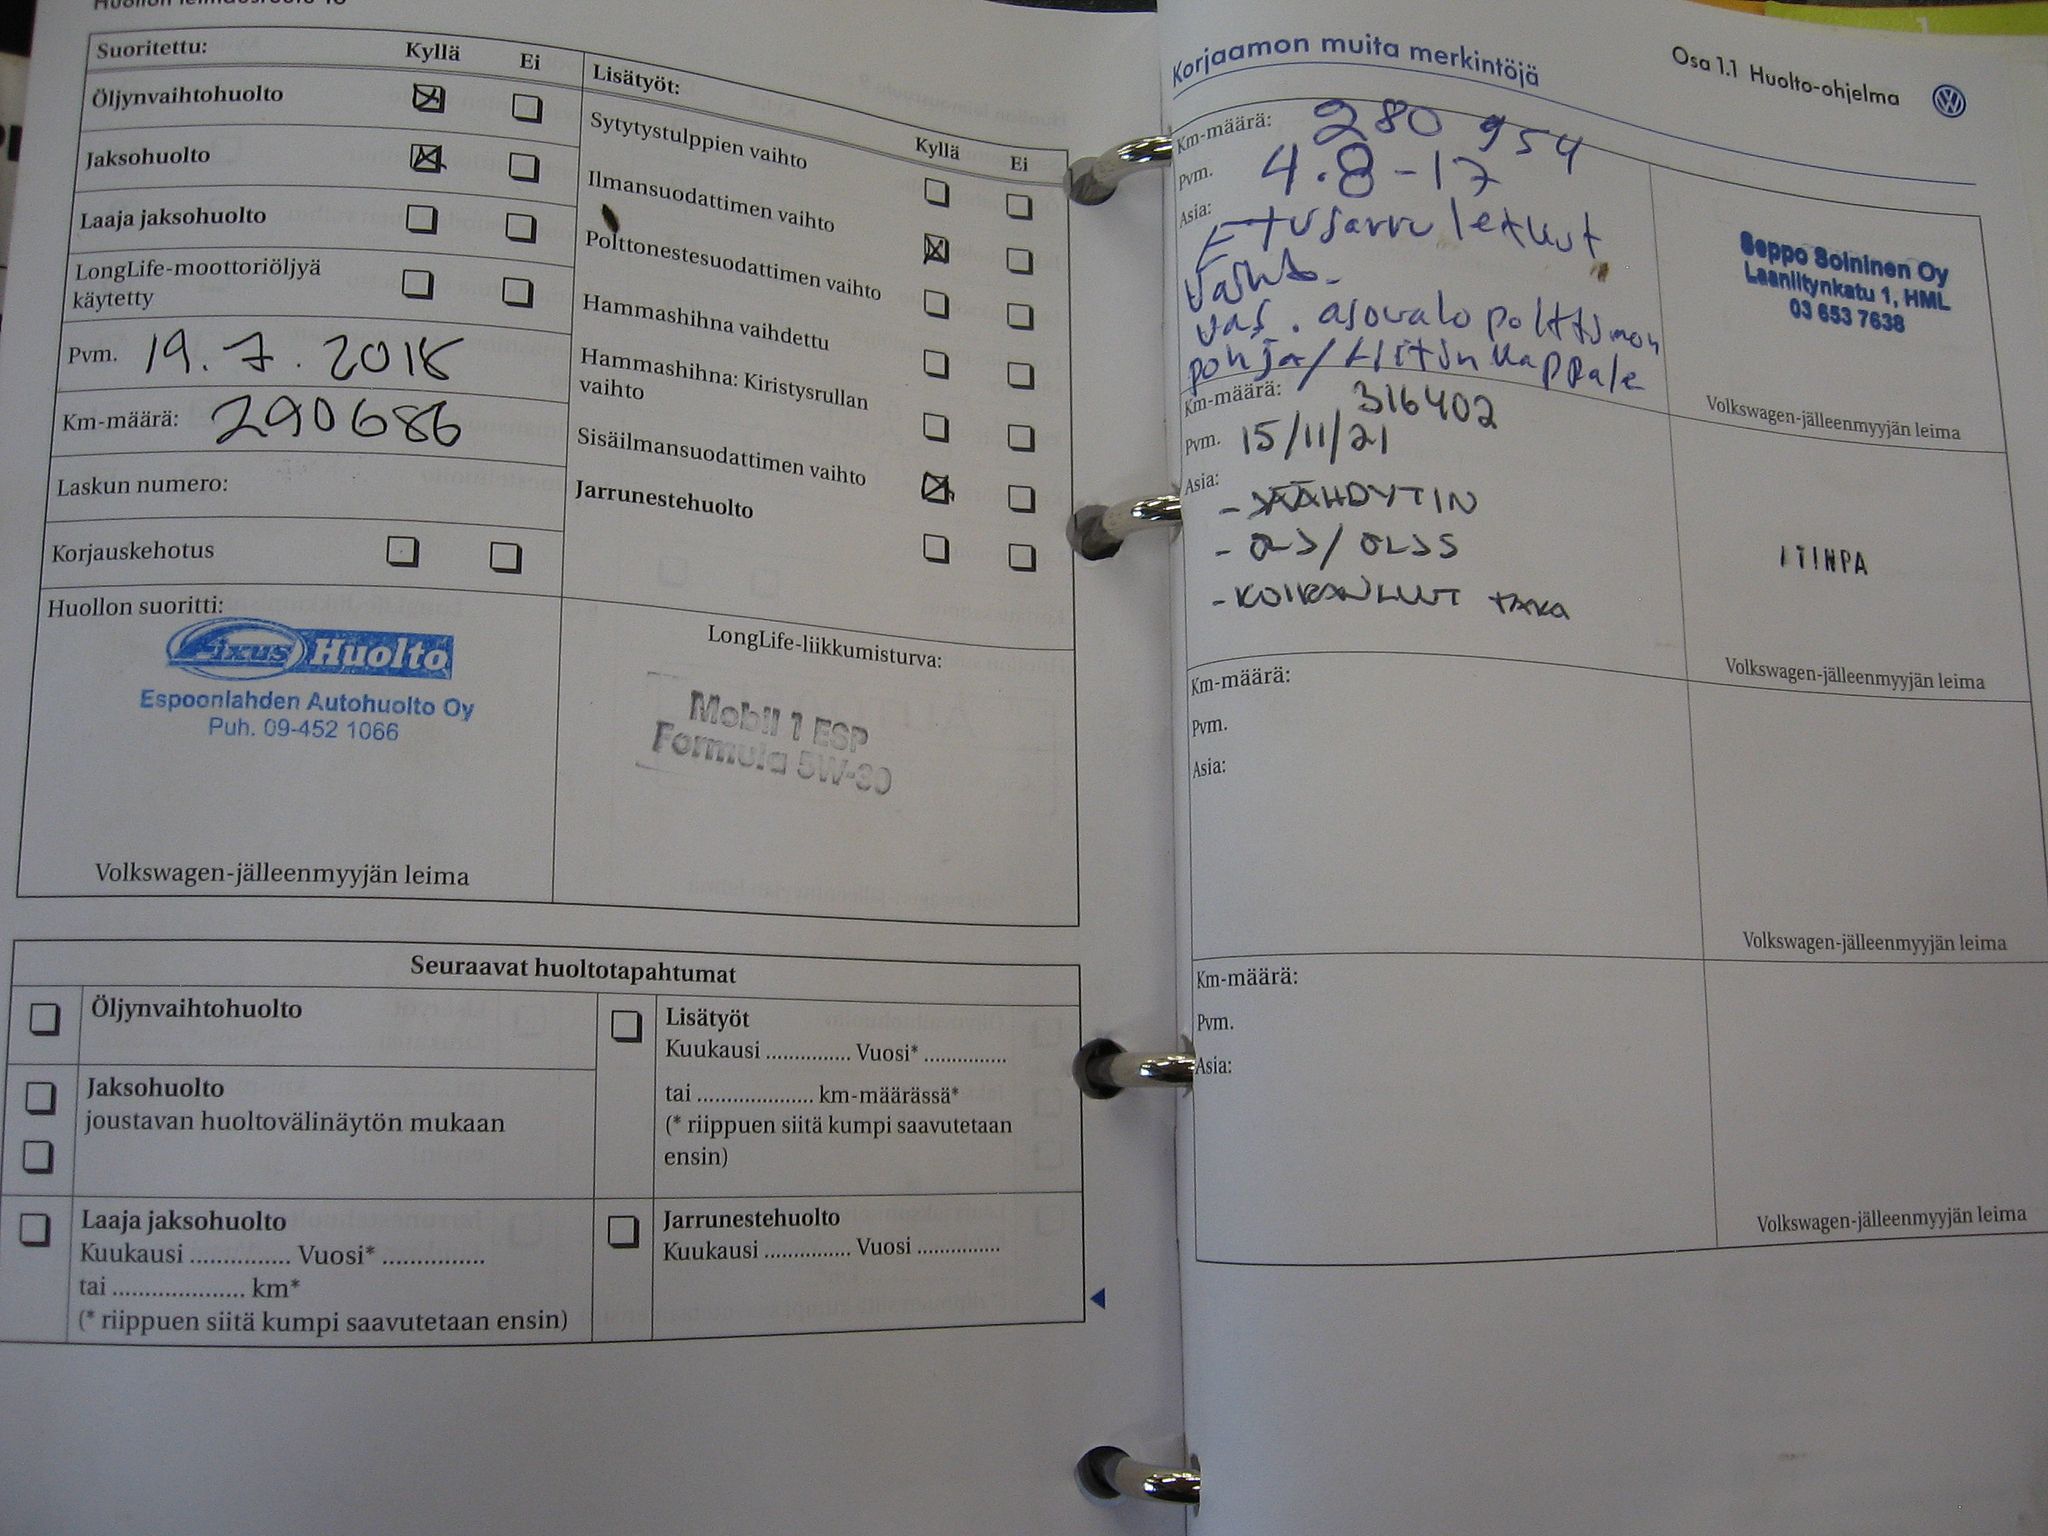 Suoritettu: Kyllä Ei
Öljynvaihtohuolto
Jaksohuolto
Laaja jaksohuolto
LongLife-moottoriöljyä
käytetty
Pvm. 19.7.2018
Km-määrä: 290686
Laskun numero:
Korjauskehotus
Huollon suoritti:
Fixus Huolto
Espoonlahden Autohuolto Oy
Puh. 09-452 1066
Volkswagen-jälleenmyyjän leima
Lisätyöt:
Kyllä Ei
Sytytystulppien vaihto
Ilmansuodattimen vaihto
Polttonestesuodattimen vaihto
Hammashihna vaihdettu
Hammashihna: Kiristysrullan
vaihto
Sisäilmansuodattimen vaihto
Jarrunestehuolto
LongLife-liikkumisturva:
Mobil 1 ESP
Formula 5W-30
Seuraavat huoltotapahtumat
Öljynvaihtohuolto
Jaksohuolto
joustavan huoltovälinäytön mukaan
Laaja jaksohuolto
Kuukausi ............... Vuosi* ...............
tai .................... km*
(* riippuen siitä kumpi saavutetaan ensin)
Lisätyöt
Kuukausi ............... Vuosi* ..............
tai .................... km-määrässä*
(* riippuen siitä kumpi saavutetaan
ensin)
Jarrunestehuolto
Kuukausi ............... Vuosi ..............
Korjaamon muita merkintöjä
Osa 1.1 Huolto-ohjelma
Km-määrä: 280 954
Pvm. 4.8-17
Asia:
Etujarru letkut
vaihto.
vas. ajovalo polttimon
pohja/liitin kappale
Seppo Soininen Oy
Laaniitynkatu 1, HML
03 653 7638
Volkswagen-jälleenmyyjän leima
Km-määrä: 316402
Pvm. 15/11/21
Asia:
- JÄÄHDYTIN
- KOIRANLUUT TAKA
ITINPA
Volkswagen-jälleenmyyjän leima
Km-määrä:
Pvm.
Asia:
Volkswagen-jälleenmyyjän leima
Km-määrä:
Pvm.
Asia:
Volkswagen-jälleenmyyjän leima